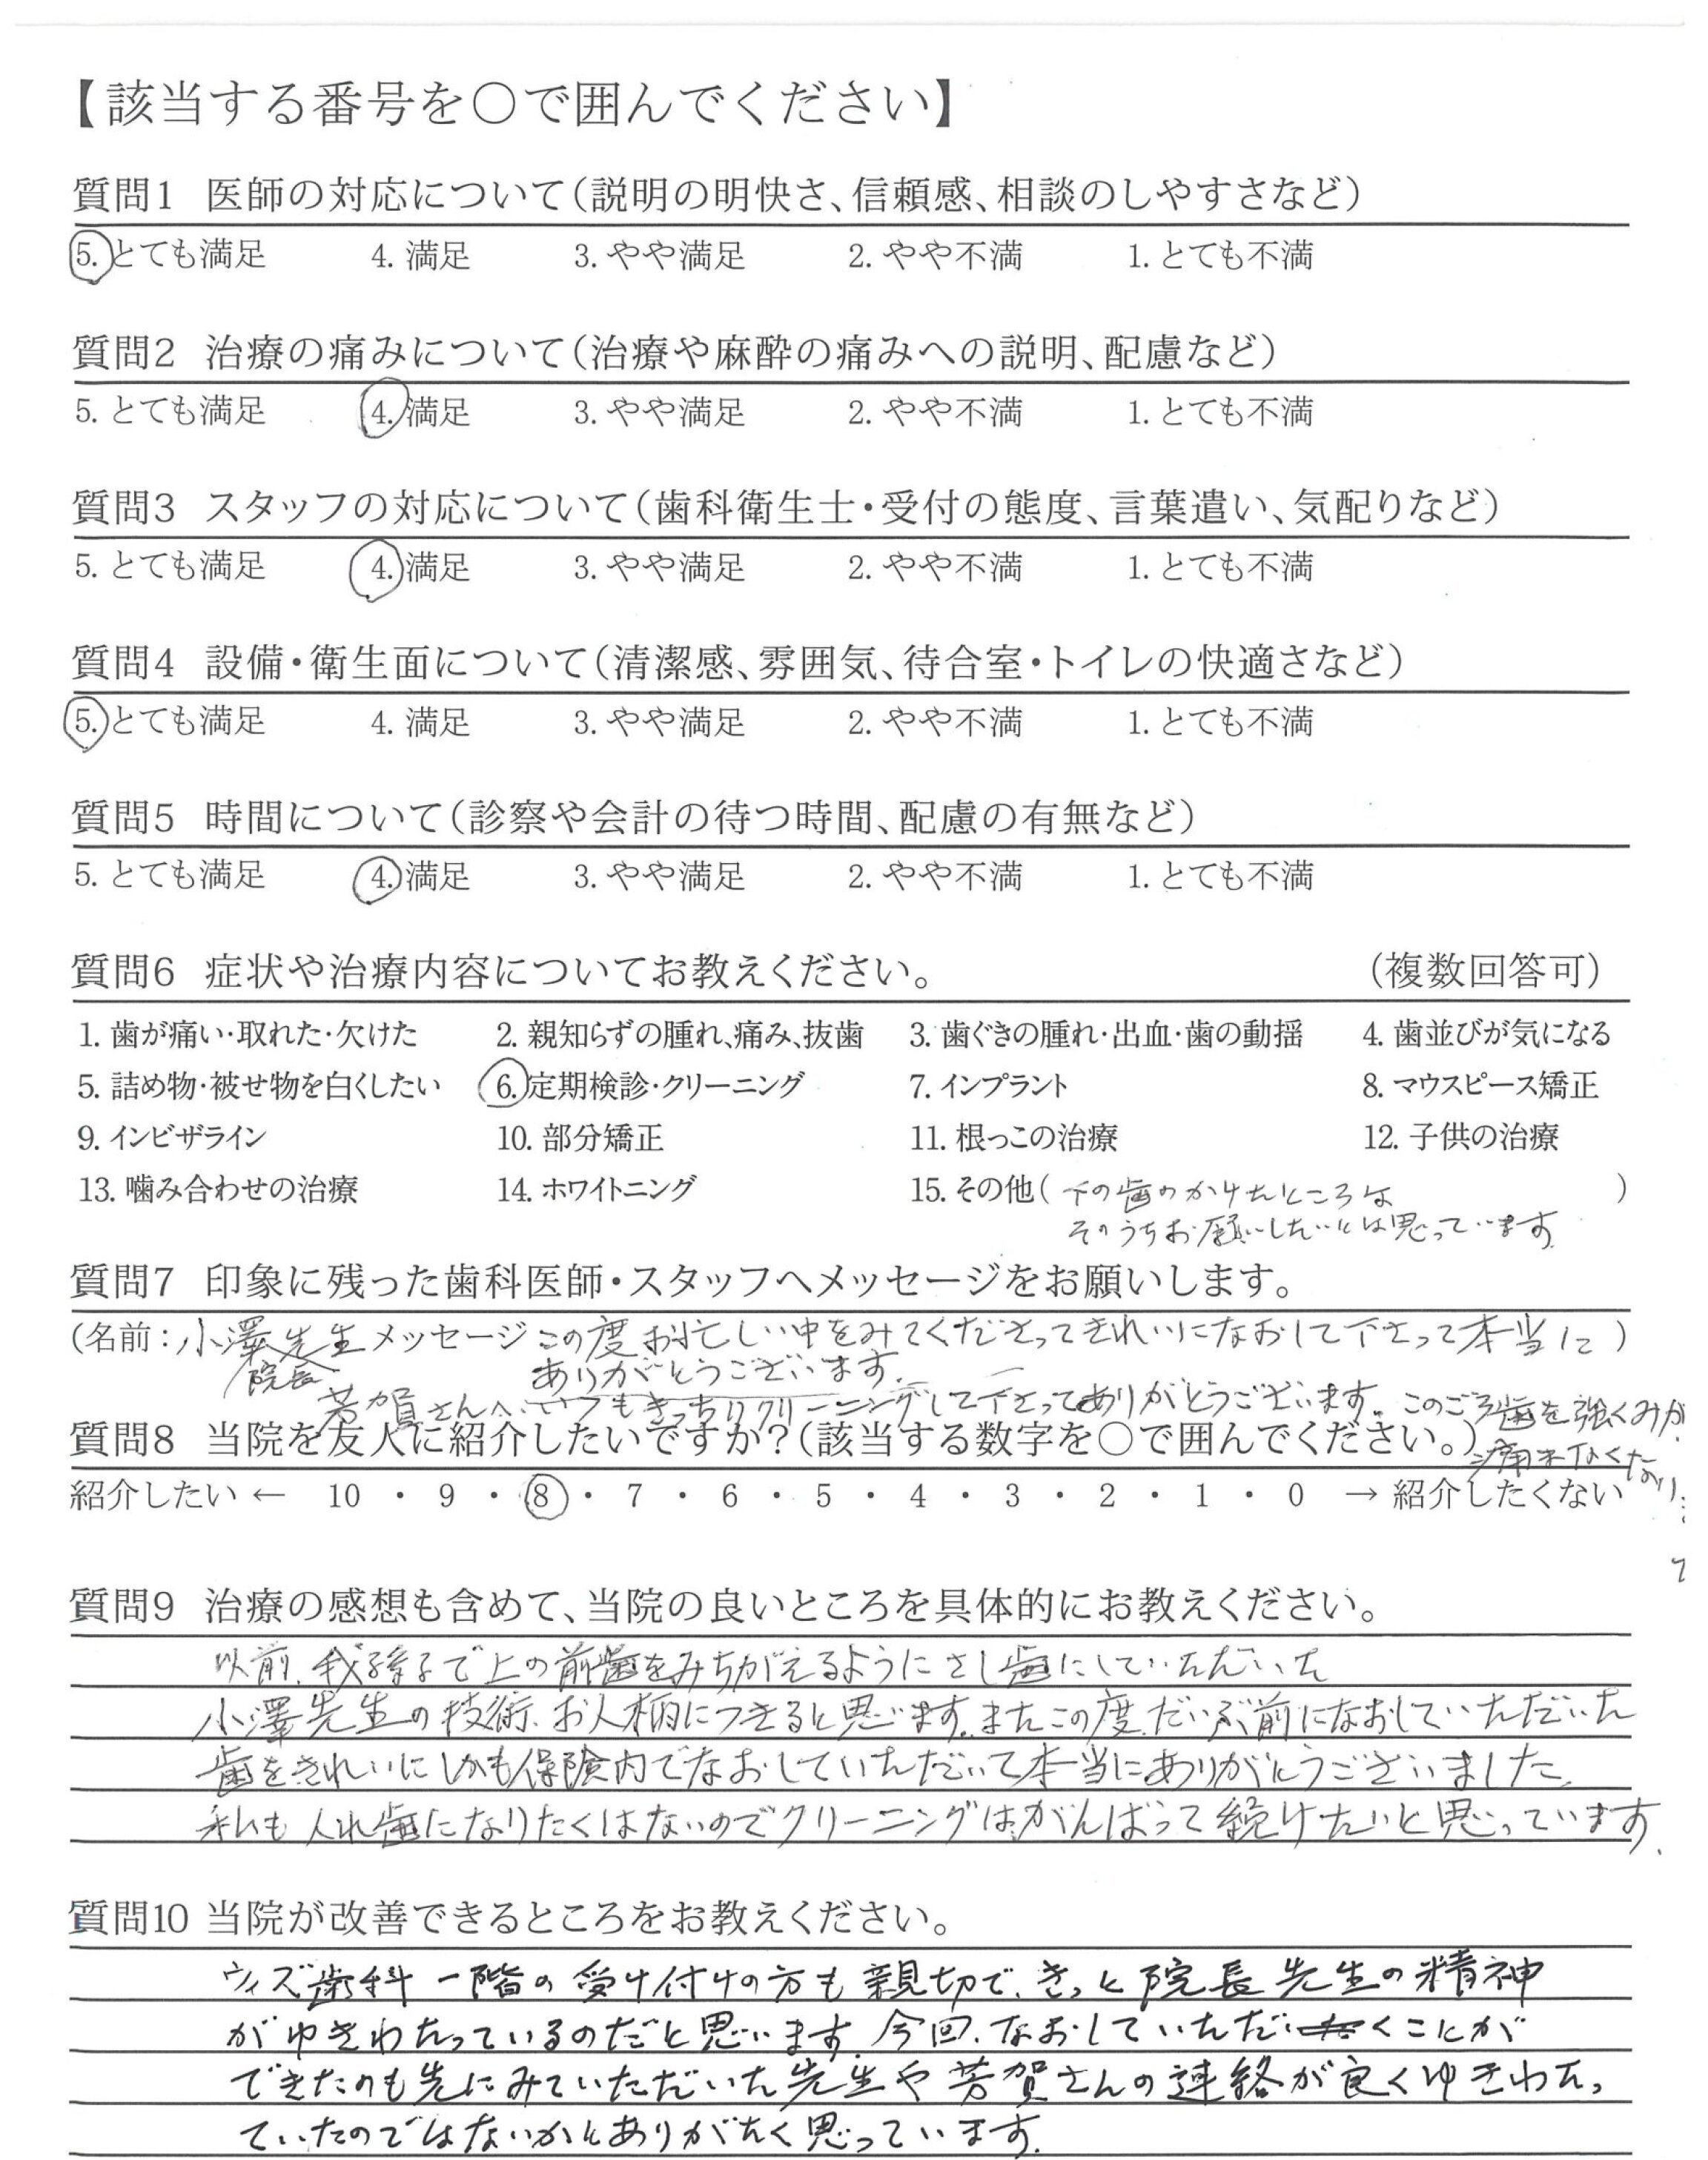 【該当する番号を○で囲んでください】
質問1 医師の対応について(説明の明快さ、信頼感、相談のしやすさなど)
5. とても満足 4. 満足 3. やや満足 2. やや不満 1. とても不満
質問2 治療の痛みについて(治療や麻酔の痛みへの説明、配慮など)
5. とても満足 4. 満足 3. やや満足 2. やや不満 1. とても不満
質問3 スタッフの対応について(歯科衛生士・受付の態度、言葉遣い、気配りなど)
5. とても満足 4. 満足 3. やや満足 2. やや不満 1. とても不満
質問4 設備・衛生面について(清潔感、雰囲気、待合室・トイレの快適さなど)
5. とても満足 4. 満足 3. やや満足 2. やや不満 1. とても不満
質問5 時間について(診察や会計の待つ時間、配慮の有無など)
5. とても満足 4. 満足 3. やや満足 2. やや不満 1. とても不満
質問6 症状や治療内容についてお教えください。 (複数回答可)
1. 歯が痛い・取れた・欠けた 2. 親知らずの腫れ、痛み、抜歯 3. 歯ぐきの腫れ・出血・歯の動揺 4. 歯並びが気になる
5. 詰め物・被せ物を白くしたい 6. 定期検診・クリーニング 7. インプラント 8. マウスピース矯正
9. インビザライン 10. 部分矯正 11. 根っこの治療 12. 子供の治療
13. 噛み合わせの治療 14. ホワイトニング 15. その他( 下の歯のかけたところは )
そのうちお願いしたいとは思っています。
質問7 印象に残った歯科医師・スタッフへメッセージをお願いします。
(名前: 小澤先生 メッセージ この度お忙しい中をみてくださってきれいになおして下さって本当に )
院長 ありがとうございます。
芳賀さんへ、いつもきっちりクリーニングして下さってありがとうございます。このごろ歯を強くみが
質問8 当院を友人に紹介したいですか?(該当する数字を○で囲んでください。)
痛まなくなり
紹介したい ← 10 ・ 9 ・ 8 ・ 7 ・ 6 ・ 5 ・ 4 ・ 3 ・ 2 ・ 1 ・ 0 → 紹介したくない
質問9 治療の感想も含めて、当院の良いところを具体的にお教えください。
以前、我孫子で上の前歯をみちがえるようにさし歯にしていただいた
小澤先生の技術、お人柄につきると思います。またこの度、だいぶ前になおしていただいた
歯をきれいにしかも保険内でなおしていただいて本当にありがとうございました。
私も入れ歯になりたくはないのでクリーニングは、がんばって続けたいと思っています。
質問10 当院が改善できるところをお教えください。
ウィズ歯科 一階の受け付けの方も親切で、きっと院長先生の精神
がゆきわたっているのだと思います。今回、なおしていただくことが
できたのも先にみていただいた先生や芳賀さんの連絡が良くゆきわたっ
ていたのではないかとありがたく思っています。